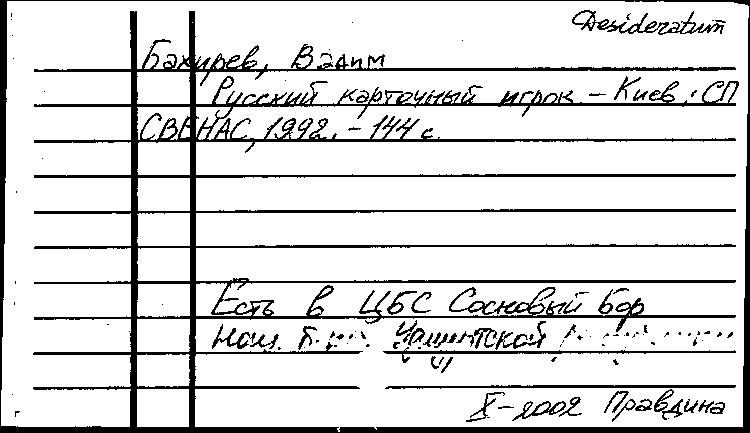 Desideratum
Бахирев, Вадим
Русский карточный игрок. – Киев: СП
СВЕНАС, 1992. – 144 с.
Есть в ЦБС Сосновый Бор
Нац.
X-2002 Правдина